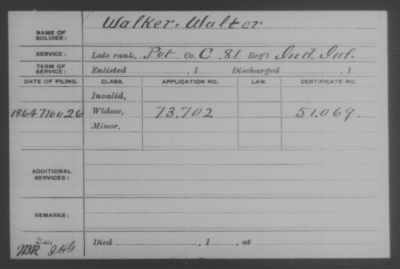 NAME OF SOLDIER: Walker, Walter
SERVICE: Late rank, Pvt Co. C, 81 Reg't Ind. Inf.
TERM OF SERVICE: Enlisted , 1 Discharged , 1
DATE OF FILING. CLASS. APPLICATION NO. LAW. CERTIFICATE NO.
Invalid,
1864 Nov 26 Widow, 73,702 51,069
Minor,
ADDITIONAL SERVICES:
REMARKS:
Died , 1 , at